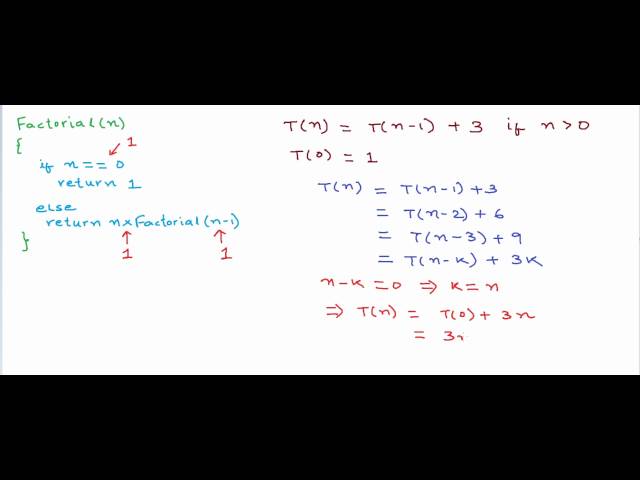 Factorial(n)
{
1
if n == 0
return 1
else
return n×Factorial(n-1)
}
1 1
T(n) = T(n-1) + 3 if n > 0
T(0) = 1
T(n) = T(n-1) + 3
= T(n-2) + 6
= T(n-3) + 9
= T(n-k) + 3k
n-k = 0 ⇒ k = n
⇒ T(n) = T(0) + 3n
= 3